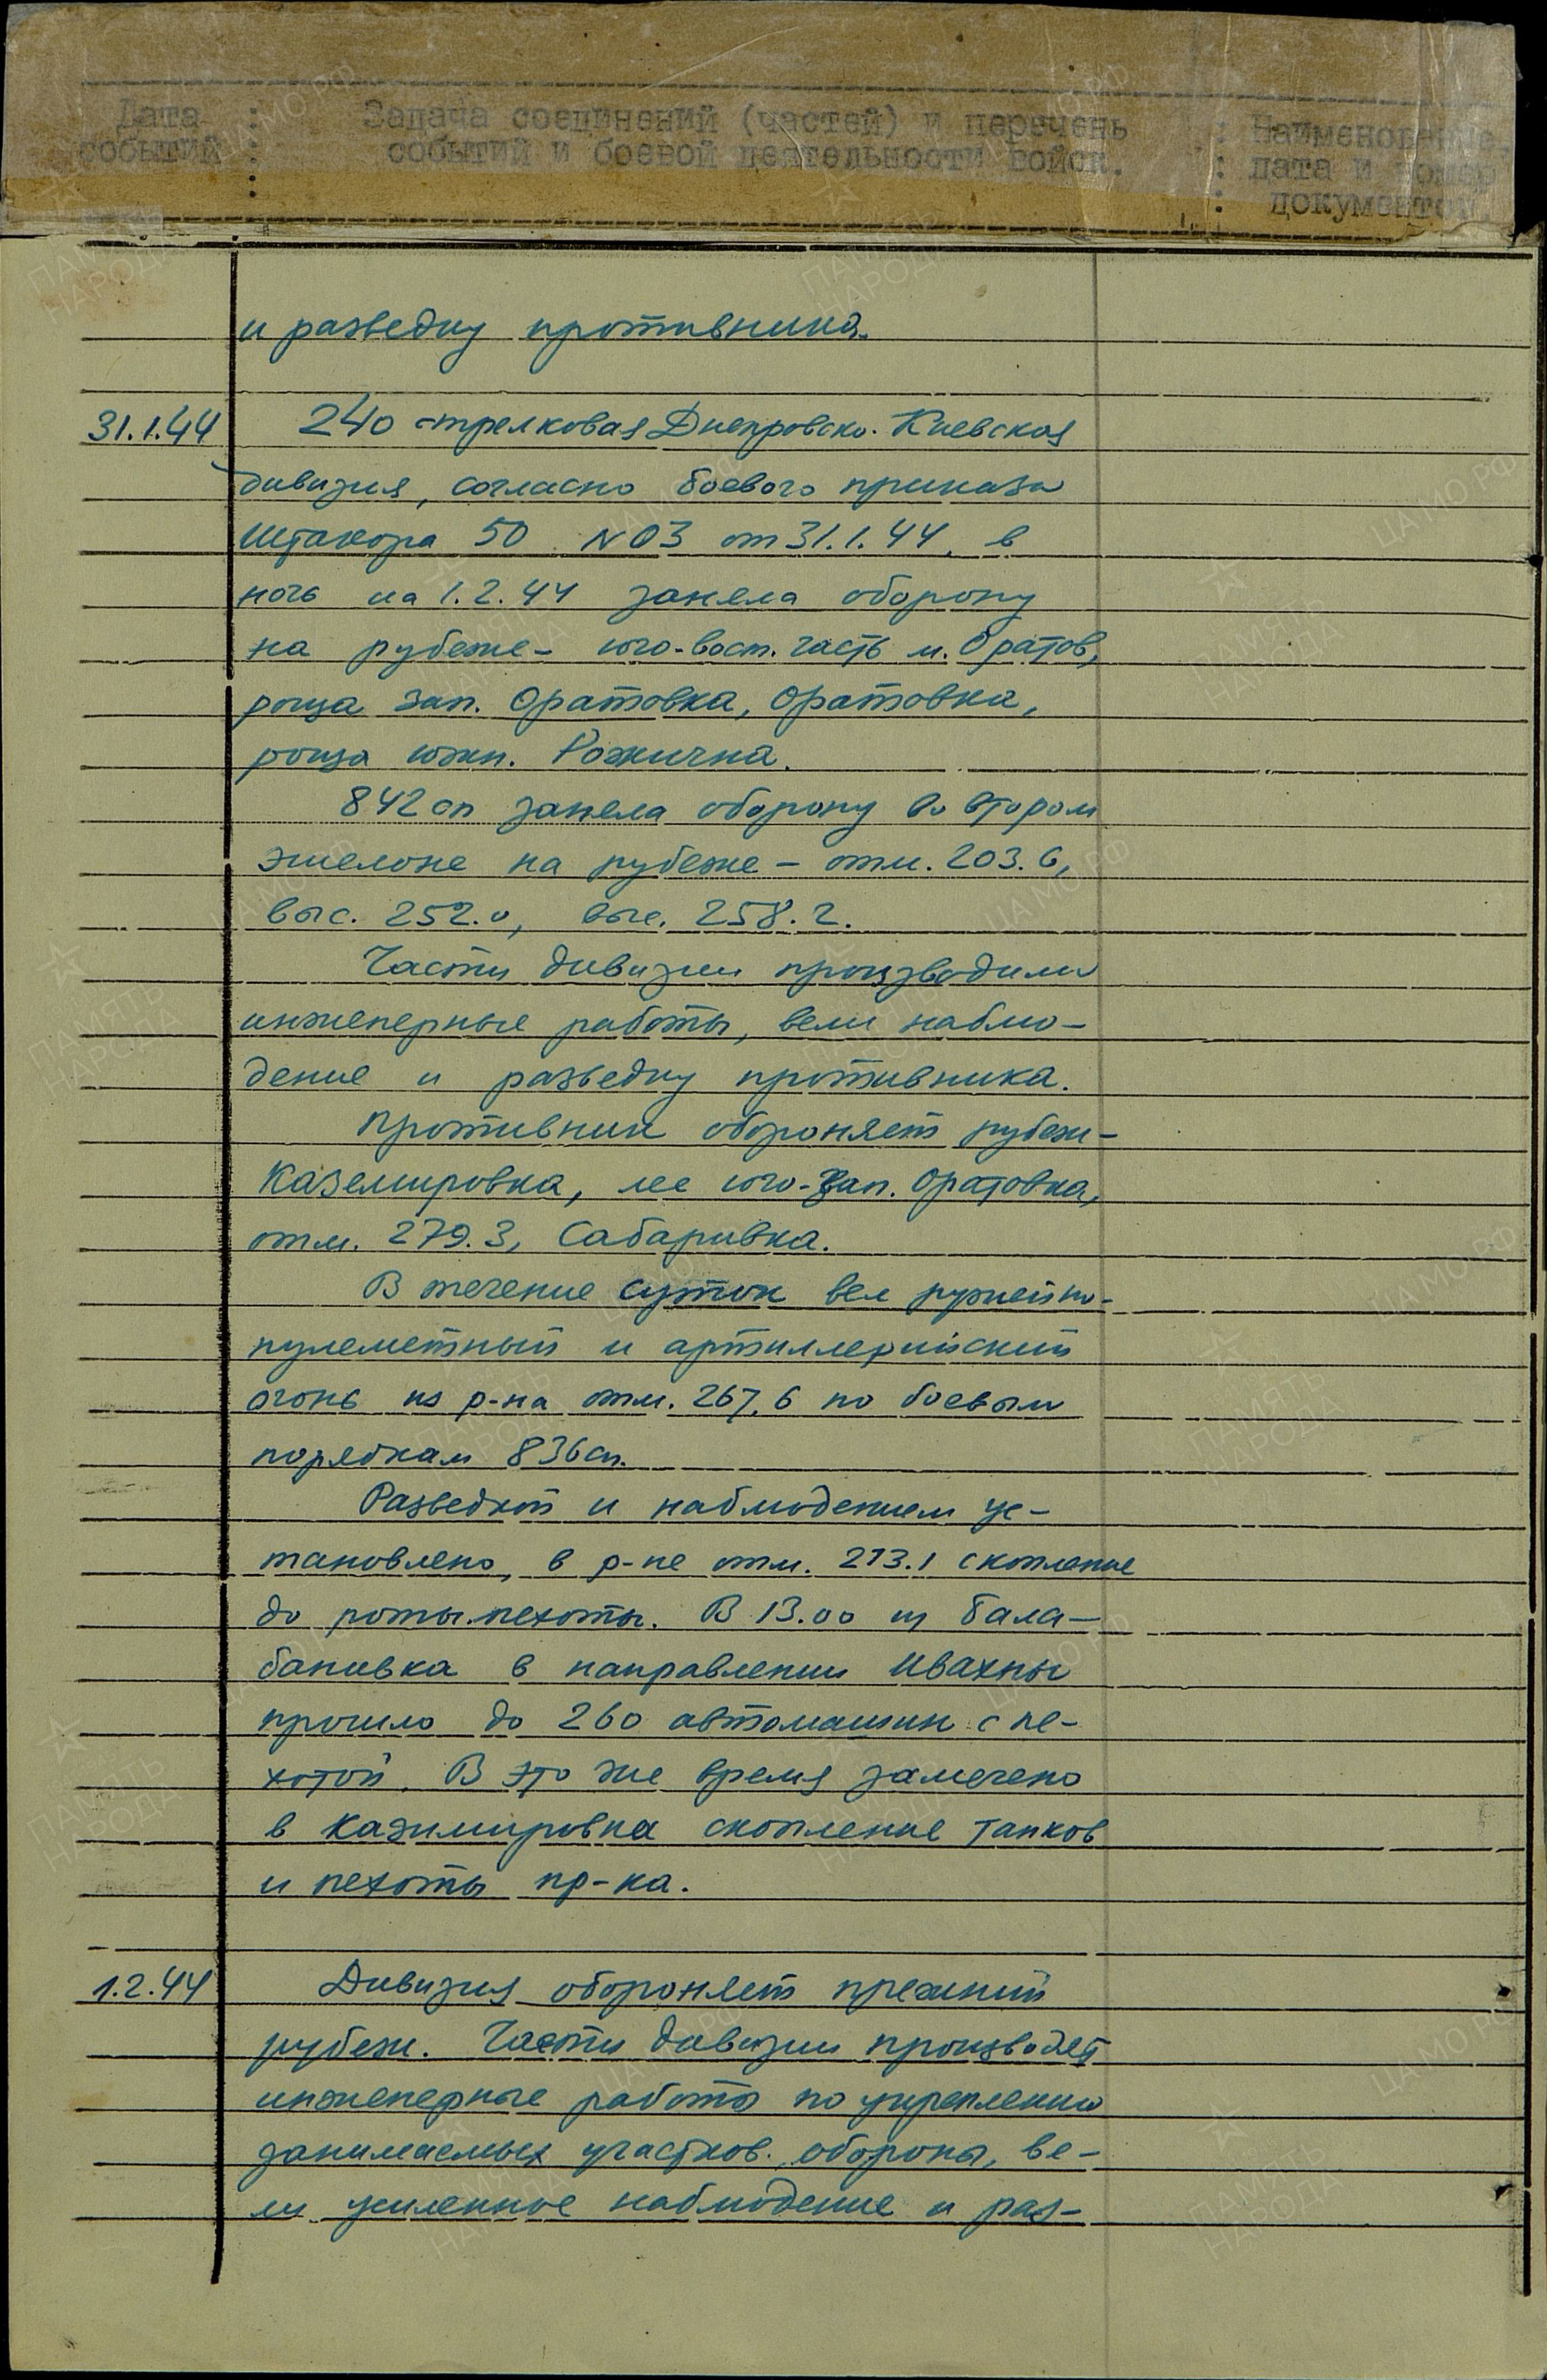 Дата : Задача соединений (частей) и перечень : Наименование,
событий : событий и боевой деятельности войск. : дата и номер
: : документов.
и разведку противника.
31.1.44 240 стрелковая Днепровско-Киевская
дивизия, согласно боевого приказа
Штакора 50 №03 от 31.1.44, в
ночь на 1.2.44 заняла оборону
на рубеже - юго-вост. часть м. Оратов,
роща зап. Оратовка, Оратовка,
роща южн. Рожична.
842 сп заняла оборону во втором
эшелоне на рубеже - отм. 203.6,
выс. 252.0, выс. 258.2.
Части дивизии производили
инженерные работы, вели наблю-
дение и разведку противника.
Противник обороняет рубеж-
Каземировка, лес юго-зап. Оратовка,
отм. 279.3, Сабаривка.
В течение суток вел ружейно-
пулеметный и артиллерийский
огонь из р-на отм. 267,6 по боевым
порядкам 836 сп.
Разведкой и наблюдением ус-
тановлено, в р-не отм. 273.1 скопление
до роты пехоты. В 13.00 из Бала-
бановка в направлении Ивахны
прошло до 260 автомашин с пе-
хотой. В это же время замечено
в Казимировка скопление танков
и пехоты пр-ка.
1.2.44 Дивизия обороняет прежний
рубеж. Части дивизии производят
инженерные работы по укреплению
занимаемых участков обороны, ве-
ли усиленное наблюдение и раз-
ЦАМО РФ
ПАМЯТЬ
НАРОДА